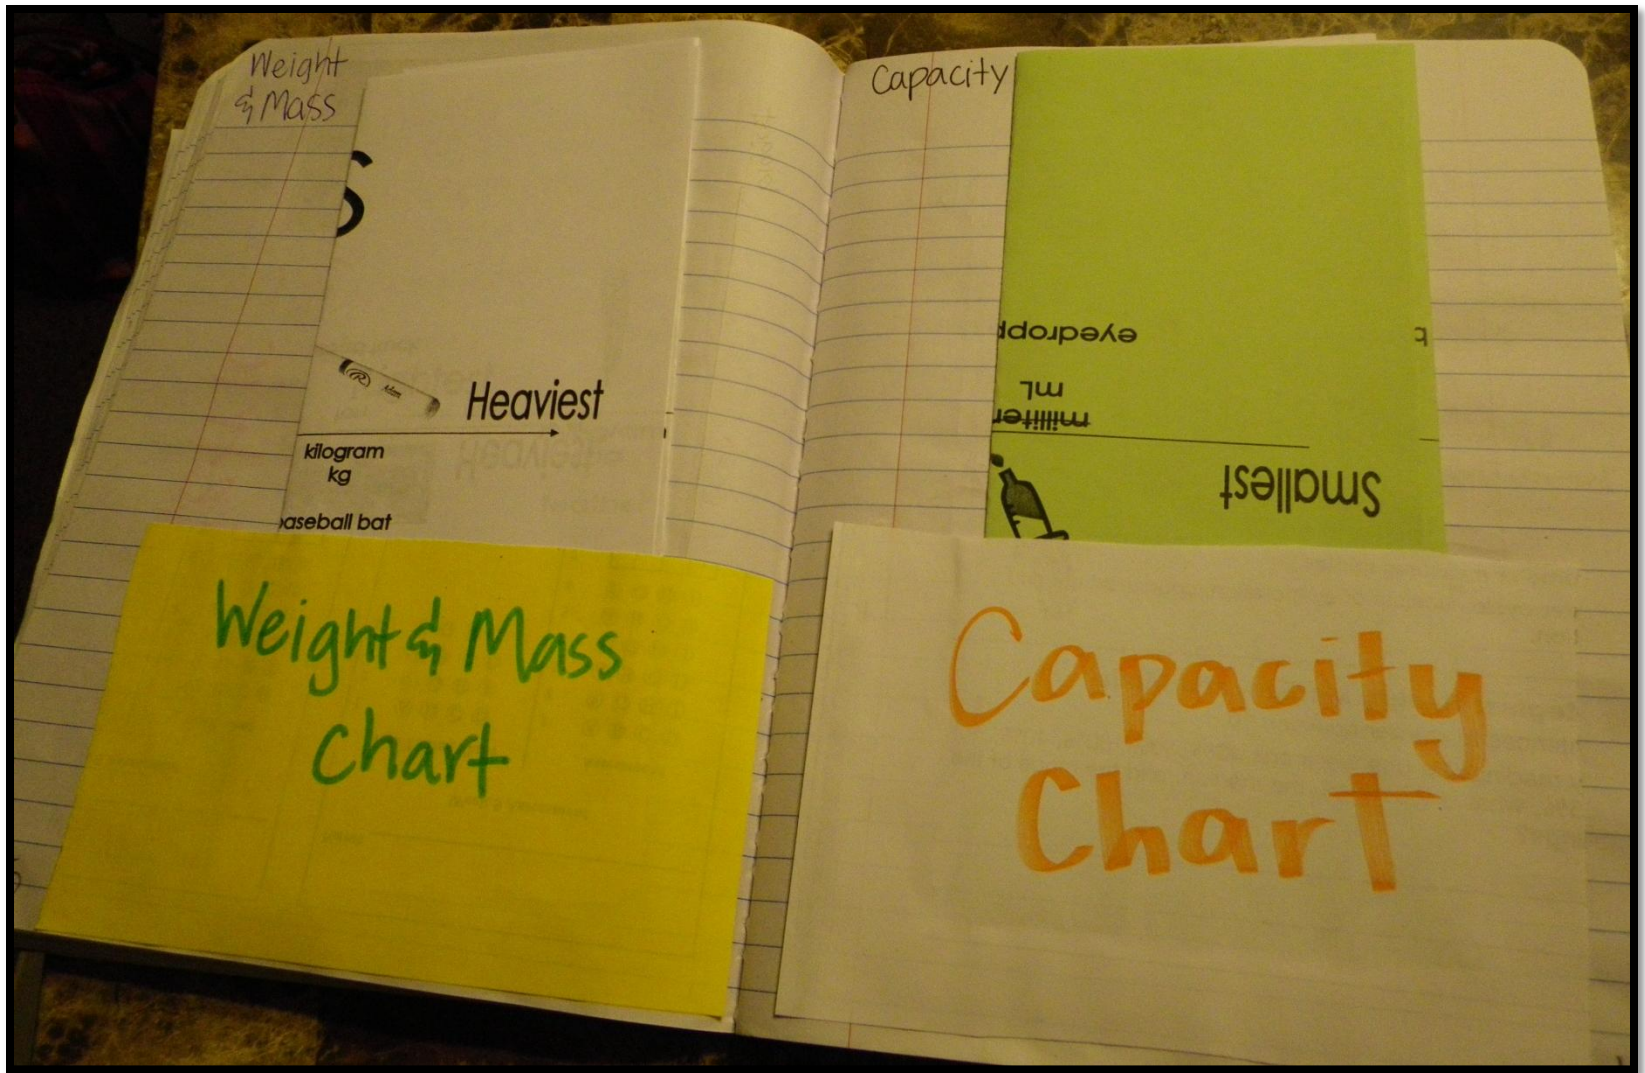 Weight
& Mass
S
Heaviest
kilogram
kg
baseball bat
Weight & Mass
Chart
Capacity
eyedropp
mL
milliliter
Smallest
Capacity
Chart